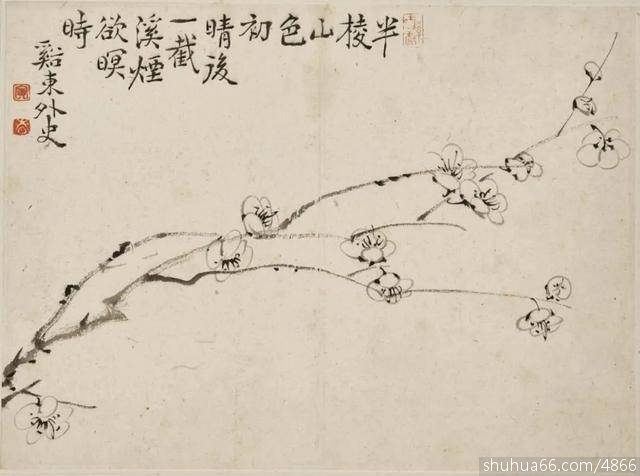 半
棱
山
色
初
晴後
一截
溪煙
欲暝
時
谿東外史
shuhua66.com/4866